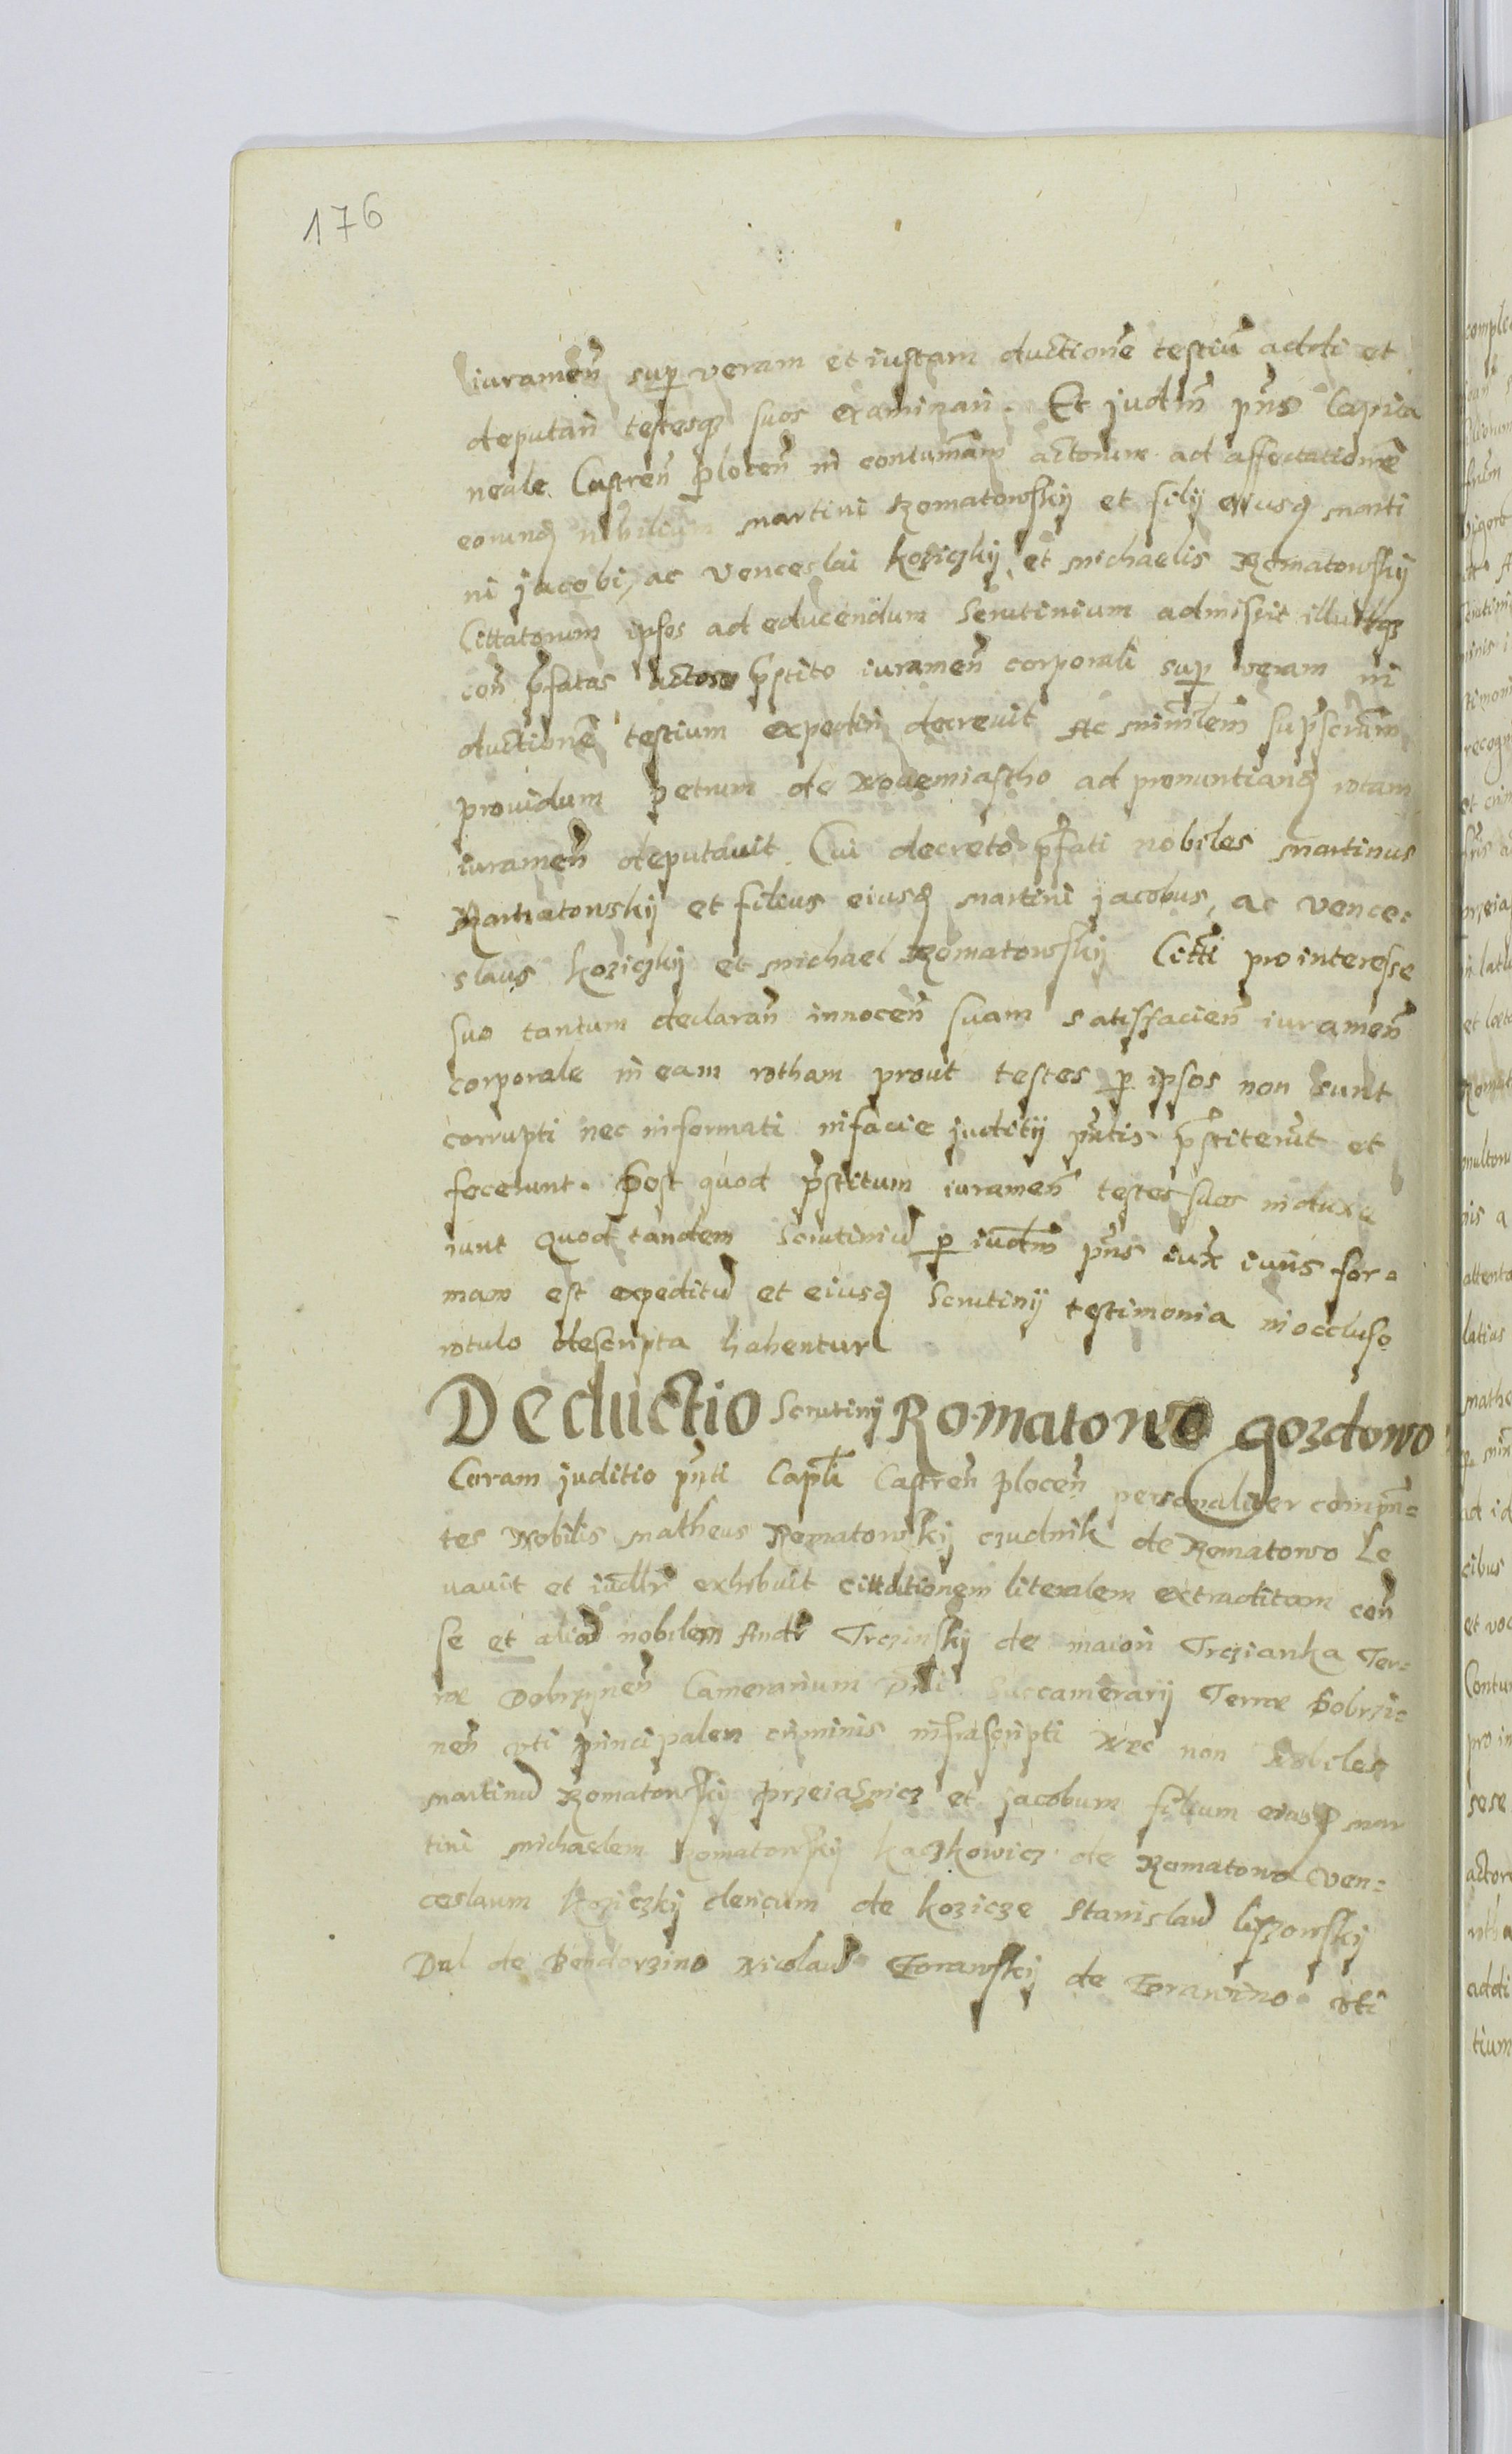 176
iuramen̄ sup̱ veram et iustam ductione̅ testiu̅ addi et
deputari testesq3 suos examinari. Et judm̄ pn̄s Capita
neale Castren̄ plocen̄ in contumām actorum ad affectatione̅
eorund nobilium martini Romatowskij et filij eiusd marti
ni jacobi, ac venceslai koziczkij et michaelis Romatowskij
Cittatorum ipsos ad educendum Scrutinium admisit illudq3
con̄ pfatas actores p̄stito iuramen̄ corporali sup̱ veram in
ductione̅ testium expediri decrevit Ac minrlem̄
providum petrum de Novemiastho ad pronuntiand rotam
iuramen̄ deputavit. Cui decreto pfati nobiles martinus
Romatowskij et filius eiusd martini jacobus, ac vence:
slaus koziczkij et michael Romatowskij Citti pro interesse
suo tantum declaran̄ innocen̄ suam satisfacien̄ iuramen̄
corporale in eam rotham prout testes p̱ ipsos non sunt
corrupti nec informati in facie juditij pn̄tis p̄stiterut et
fecerunt. Post quod p̄stitum iuramen̄ testes suos induxe
runt Quod tandem Scrutiniu̅ p̱ iudm̄ pn̄s iux̄ iuris for=
mam est expeditu̅ et eiusd Scrutinij testimonia in occluso
rotulo descripta habentur
Deductio Scrutinij Romatowo gozdowo
Coram juditio pn̄ti Capli Castren̄ plocen̄ personaliter compn̄=
tes Nobilis matheus Romatowskij czudnik de Romatowo Le
vavit et iudlr exhibuit cittationem literalem extraditam con̄
se et aliu̅ nobilem Andr Trczinskij de maiori Trczianka Ter=
ræ Dobrzynen̄ Camerarium Succamerarij Terræ Dobrzi=
nen̄ uti principalem criminis infrascripti Nec non Nobiles
martinu̅ Romatowskij przeiasnicz et jacobum filium eiusd mar
tini michaelem Romatowskij kaczkowicz de Romatowo Ven=
ceslaum koziczkij clericum de kozicze Stanislau̅ liszowskij
Dul de Bendorzino Nicolau̅ Zorawskij de Zorawino uti